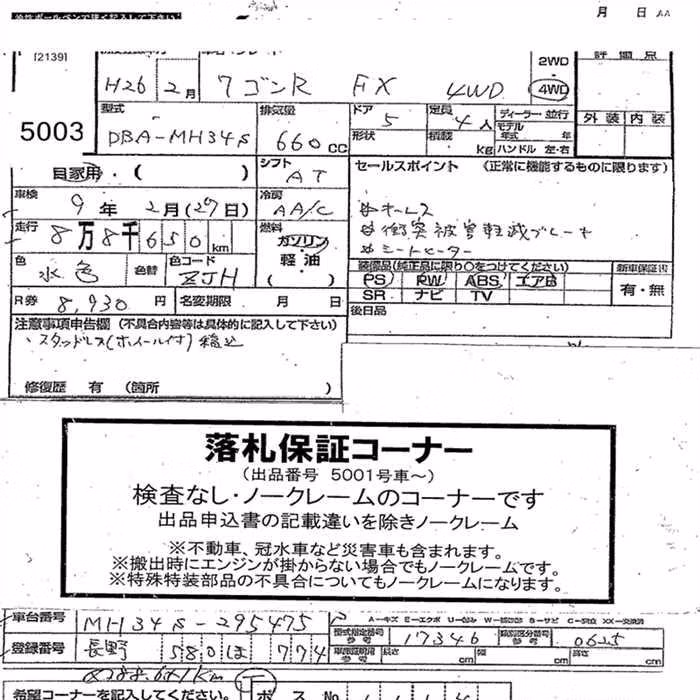 月 日 AA
[2139] 評価点
H26 2月 ワゴンR FX 4WD 2WD 4WD
5003
型式 DBA-MH34S 排気量 660 CC ドア 5 形状 定員 4人 積載 kg ディーラー・並行 モデル年式 年 ハンドル 左・右 外装 内装
自家用・( ) シフト AT セールスポイント (正常に機能するものに限ります)
車検 9年 2月(27日) 冷房 AA/C
キーレス
走行 8万8千650km 燃料 ガソリン 軽油 ( )
衝突被害軽減ブレーキ
シートヒーター
色 水色 色替 色コード ZJH
装備品(純正品に限り○をつけてください) 新車保証書
PS PW ABS エアB 有・無
SR ナビ TV
R券 8,930円 名変期限 月 日 後日品
注意事項申告欄 (不具合内容等は具体的に記入して下さい)
スタッドレス(ホイール付)積込
修復歴 有 (箇所 )
落札保証コーナー
(出品番号 5001号車~)
検査なし・ノークレームのコーナーです
出品申込書の記載違いを除きノークレーム
※不動車、冠水車など災害車も含まれます。
※搬出時にエンジンが掛からない場合でもノークレームです。
※特殊特装部品の不具合についてもノークレームになります。
車台番号 MH34S-295475
型式指定番号 参考 17346 類別区分番号 参考 0625
登録番号 長野 580 ほ 774
長さ cm 幅 cm 高さ cm
希望コーナーを記入してください。 No 1114